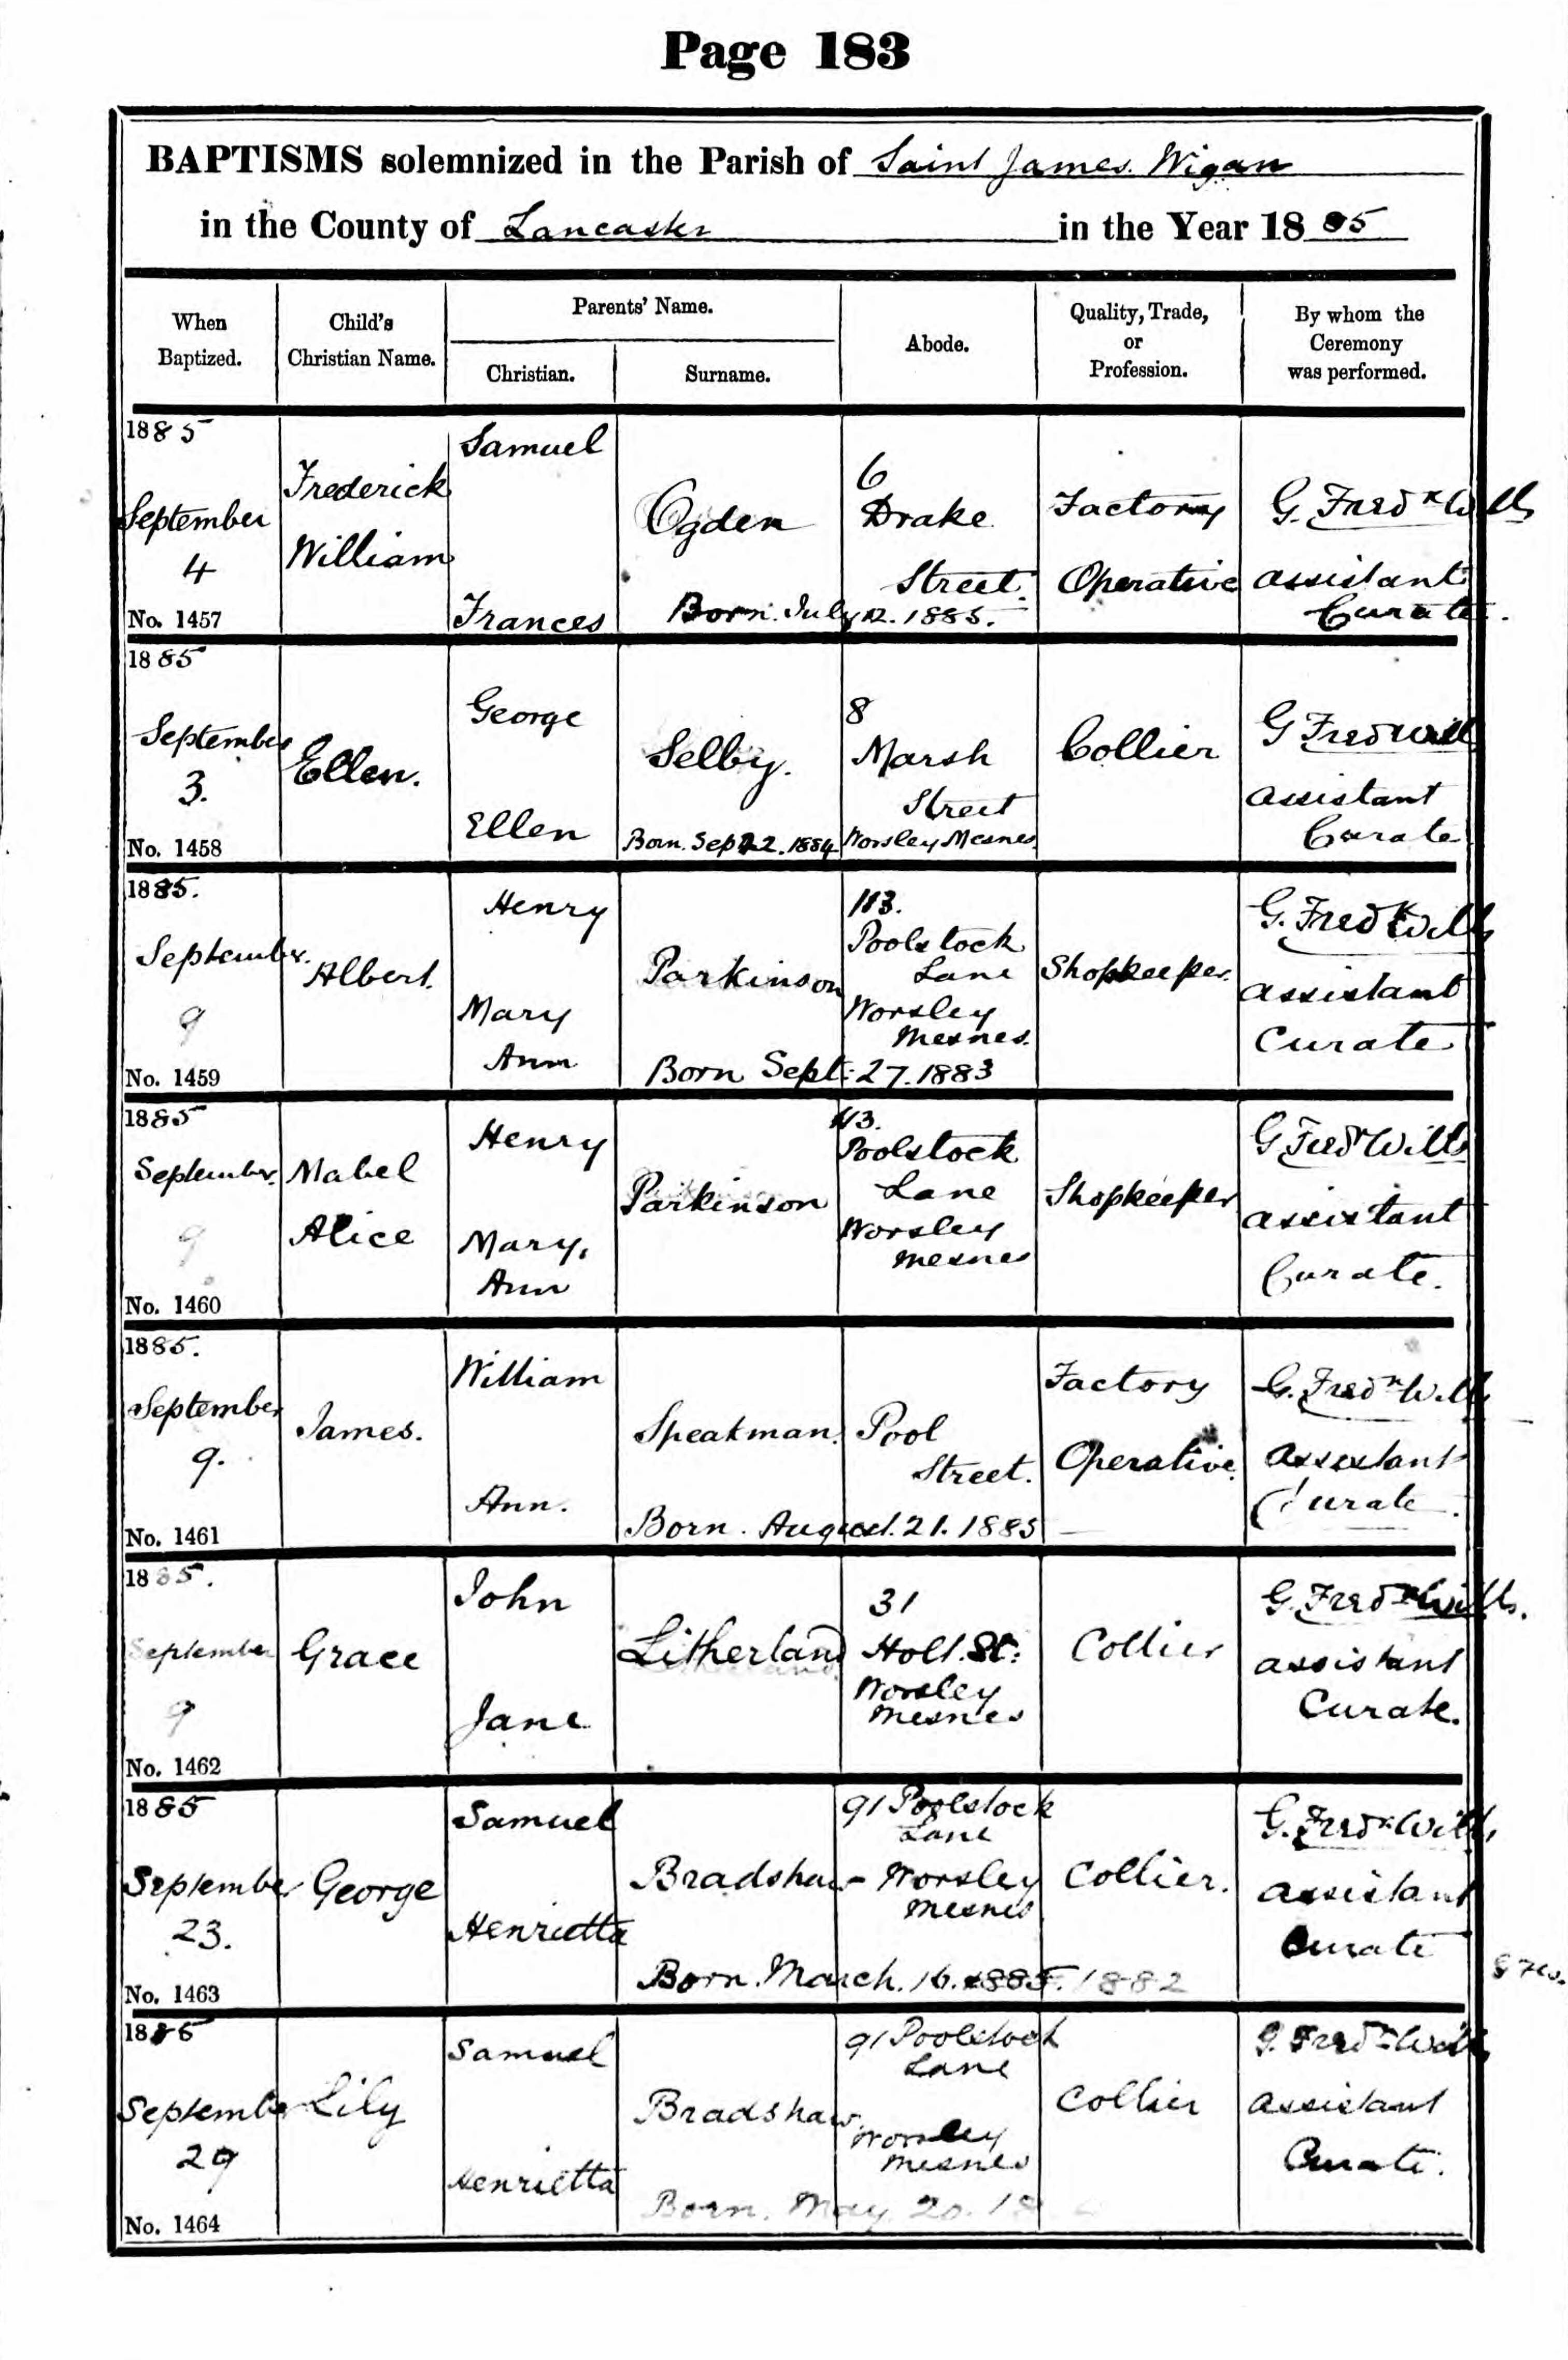 Page 183
BAPTISMS solemnized in the Parish of Saint James. Wigan
in the County of Lancaster in the Year 1885
When Baptized.
Child's Christian Name.
Parents' Name.
Christian.
Surname.
Abode.
Quality, Trade, or Profession.
By whom the Ceremony was performed.
1885
September
4
No. 1457
Frederick
William
Samuel
Frances
Ogden
6
Drake
Street.
Born. July 12. 1885.
Factory
Operative
G. Fredk Wills
assistant
Curate.
1885
September
3.
No. 1458
Ellen.
George
Ellen
Selby.
Born. Sep 22. 1884
8
Marsh
Street
Worsley Mesnes
Collier
G Fred Wills
assistant
Curate
1885.
September.
9
No. 1459
Albert.
Henry
Mary
Ann
Parkinson
113.
Poolstock
Lane
Worsley
Mesnes.
Born Sept: 27. 1883
Shopkeeper.
G. Fredk Wills
assistant
Curate
1885
September.
9
No. 1460
Mabel
Alice
Henry
Mary,
Ann
Parkinson
113.
Poolstock
Lane
Worsley
Mesnes
Shopkeeper
G Fredk Wills
assistant
Curate.
1885.
September
9.
No. 1461
James.
William
Ann.
Speakman.
Pool
Street.
Born. August. 21. 1885
Factory
Operative.
G. Fredk Wills
assistant
Curate.
1885.
September
9
No. 1462
Grace
John
Jane
Litherland
31
Holt. St:
Worsley
Mesnes
Collier
G. Fredk Wills.
assistant
Curate.
1885
September
23.
No. 1463
George
Samuel
Henrietta
Bradshaw
91 Poolstock
Lane
Worsley
Mesnes
Born. March. 16. 1885. 1882
Collier.
G. Fredk Wills
assistant
Curate
1885
September
29
No. 1464
Lily
Samuel
Henrietta
Bradshaw
91 Poolstock
Lane
Worsley
Mesnes
Born. May 20. 18
Collier
G. Fredk Wills
assistant
Curate.